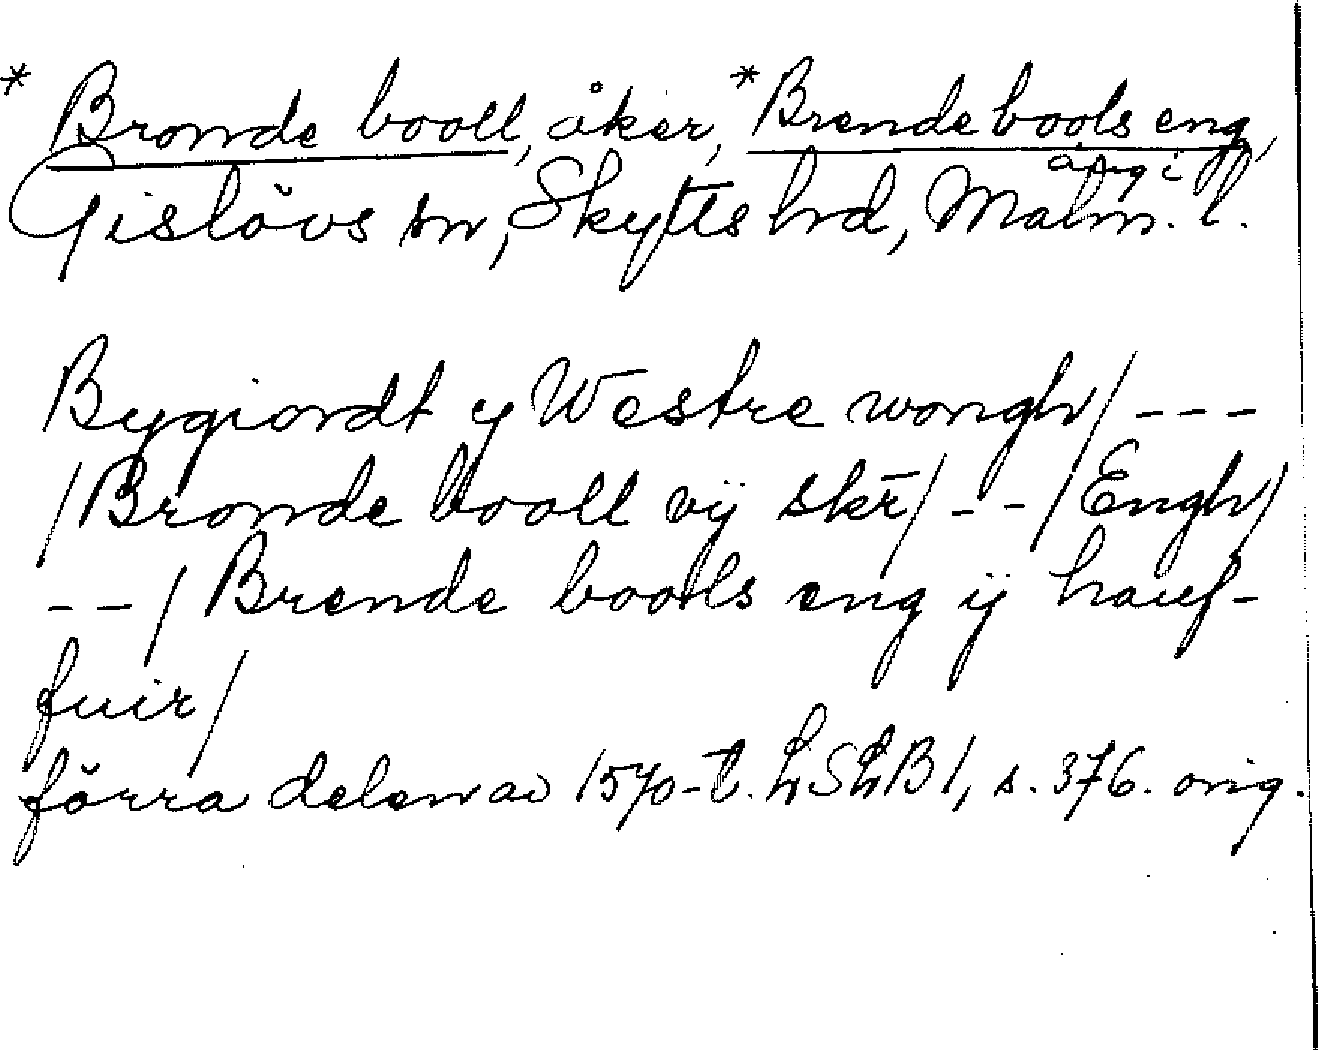 * Bronde booll, åker, * Brende bools eng,
äng i
Gislövs sn, Skytts hd, Malm. l.
Bygiordt y Westre wongh/ ---
/Bronde booll vij skr/ -- /Engh/
-- / Brende boolls eng ij hauf-
fuir/
förra delen av 1570-t. LSLB1, s. 376. orig.